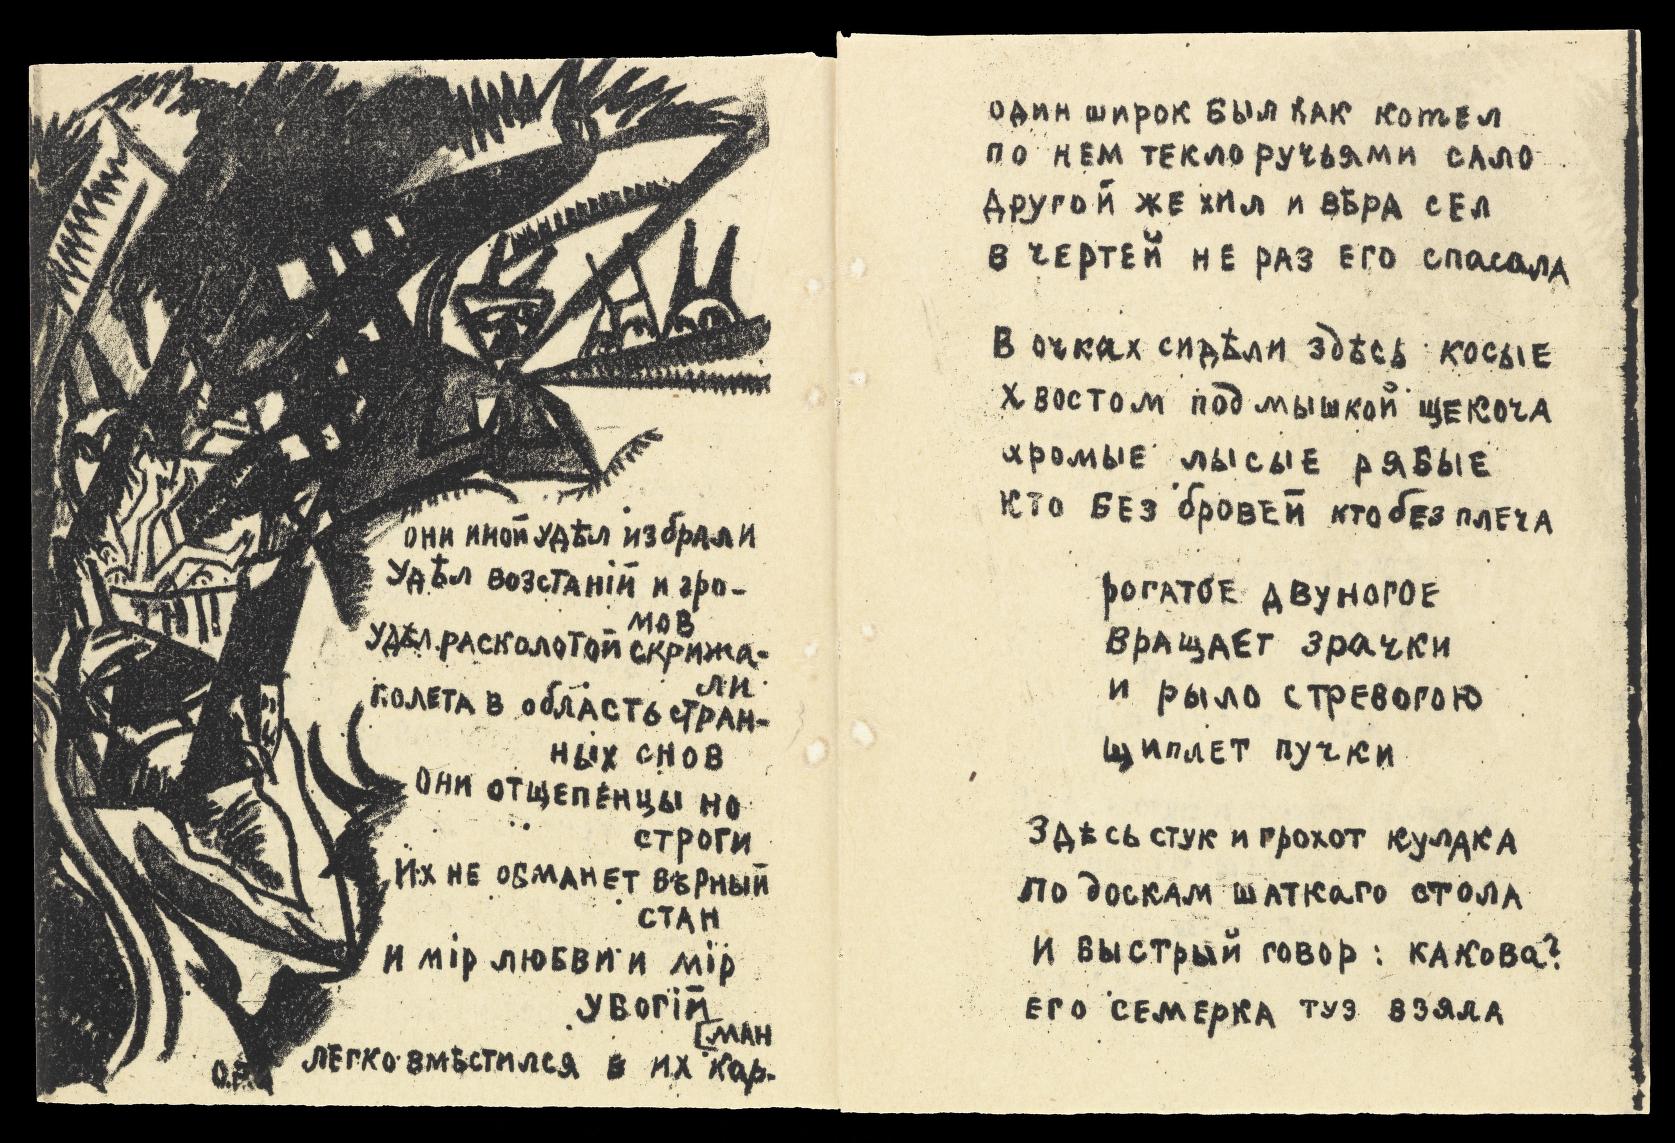 они иной удѣл избрали
Удѣл возстаній и гро-
мов
удѣл расколотой скрижа-
ли
полета в область стран-
ных снов
Они отщепенцы но
строги
Их не обманет вѣрный
стан
И мір любви и мір
убогій
[ман
Легко вмѣстился в их кар-
О.Р.
один широк был как котел
по нем текло ручьями сало
другой же хил и вѣра сел
в чертей не раз его спасала
В очках сидѣли здѣсь косые
Хвостом под мышкой щекоча
хромые лысые рябые
кто без бровей кто без плеча
рогатое двуногое
вращает зрачки
и рыло с тревогою
щиплет пучки
Здѣсь стук и грохот кулака
По доскам шаткаго стола
И быстрый говор: какова?
его семерка туз взяла